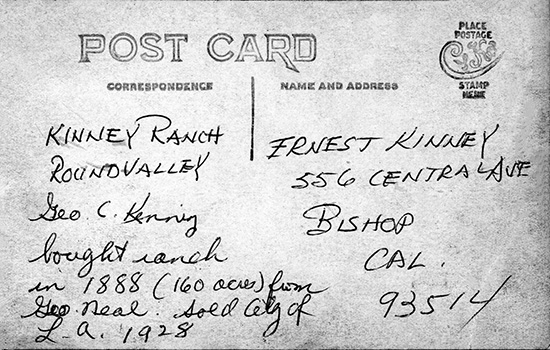 POST CARD
PLACE
POSTAGE
STAMP
HERE
CORRESPONDENCE
NAME AND ADDRESS
KINNEY RANCH
ROUNDVALLEY
Geo. C. Kinney
bought ranch
in 1888 (160 acres) from
Geo. Neal. Sold City of
L.A. 1928
ERNEST KINNEY
556 CENTRAL AVE
BISHOP
CAL.
93514